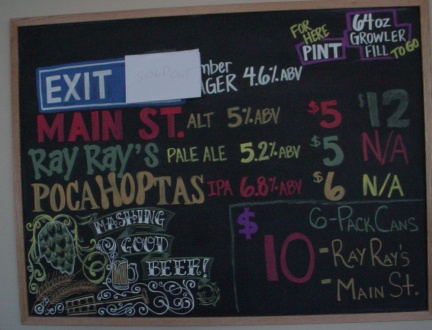 FOR HERE PINT
64oz GROWLER FILL TO GO
EXIT
mber
AGER 4.6% ABV
MAIN ST. ALT 5% ABV $5 $12
RAY RAY'S PALE ALE 5.2% ABV $5 N/A
POCAHOPTAS IPA 6.8% ABV $6 N/A
MASHING
GOOD
BEER!
$10
6-PACK CANS
-RAY RAY'S
-MAIN ST.